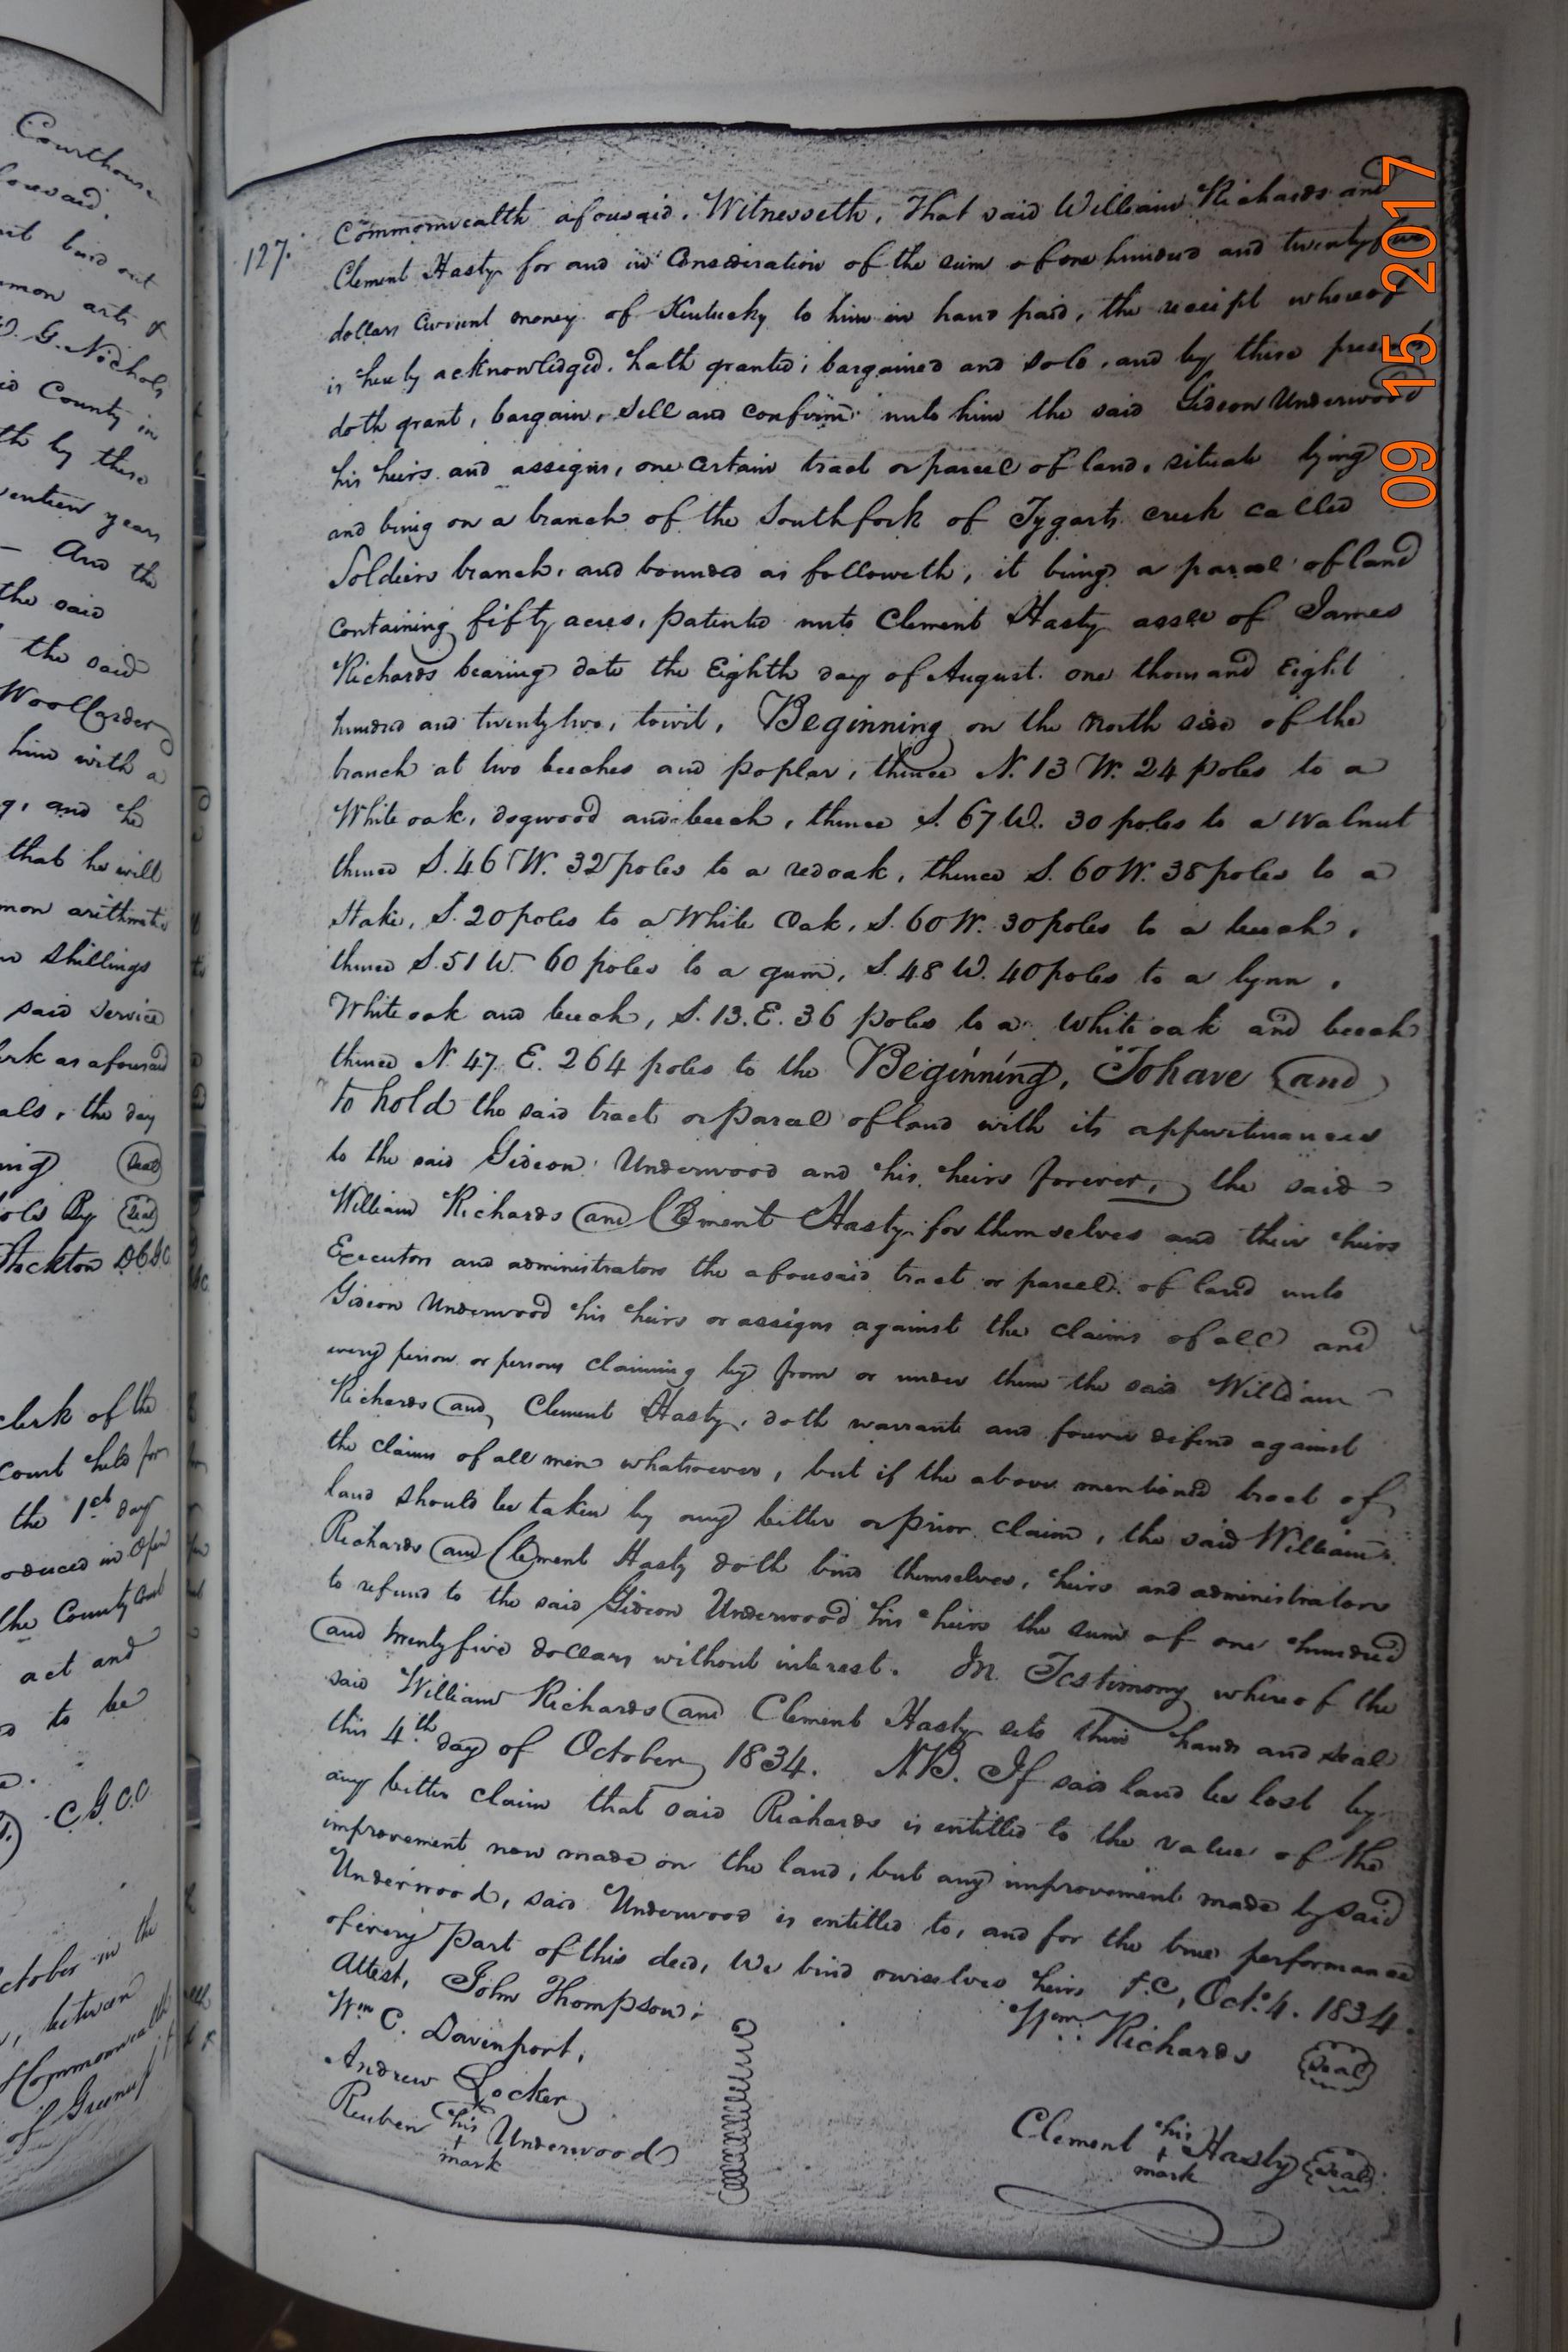 Courthouse
aforesaid,
bind out
common arts of
G. Nichols
County in
by these
years
— And the
the said
the said
Woolforder
him with a
and he
that he will
common arithmetic
shillings
said service
Clerk as aforesaid
seals, the day
Seal
By Seal
Stockton
clerk of the
Court held for
the 1st day
produced in Open
the County Court
act and
to be
C.G.C.C.
October in the
between
Commonwealth
of Greenup
127.
Commonwealth aforesaid. Witnesseth, That said William Richards and
Clement Hasty for and in Consideration of the sum of one hundred and twenty five
dollars Current money of Kentucky to him in hand paid, the receipt whereof
is hereby acknowledged, hath granted, bargained and sold, and by these presents
doth grant, bargain, sell and confirm unto him the said Gideon Underwood
his heirs and assigns, one certain tract or parcel of land, situate lying
and being on a branch of the South fork of Tygarts creek called
Soldiers branch, and bounded as followeth, it being a parcel of land
containing fifty acres, patented unto Clement Hasty assee of James
Richards bearing date the Eighth day of August one thousand Eight
hundred and twenty two, towit, Beginning on the North side of the
branch at two beeches and poplar, thence N. 13 W. 24 poles to a
White oak, dogwood and beech, thence S. 67 W. 30 poles to a Walnut
thence S. 46 W. 32 poles to a red oak, thence S. 60 W. 38 poles to a
Stake, S. 20 poles to a White Oak, S. 60 W. 30 poles to a beech,
thence S. 51 W. 60 poles to a gum, S. 48 W. 40 poles to a lynn,
White oak and beech, S. 13. E. 36 poles to a white oak and beech
thence N. 47. E. 264 poles to the Beginning, To have and
to hold the said tract or parcel of land with its appurtinances
to the said Gideon Underwood and his heirs forever, the said
William Richards and Clement Hasty for themselves and their heirs
Executors and administrators the aforesaid tract or parcel of land unto
Gideon Underwood his heirs or assigns against the claims of all and
every person or persons claiming by from or under them the said William
Richards and Clement Hasty, doth warrant and forever defend against
the claims of all men whatsoever, but if the above mentioned tract of
land should be taken by any better or prior claim, the said William
Richards and Clement Hasty doth bind themselves, heirs and administrators
to refund to the said Gideon Underwood his heirs the sum of one hundred
and twenty five dollars without interest. In Testimony whereof the
said William Richards and Clement Hasty sets their hands and seals
this 4th day of October 1834. NB. If said land be lost by
any better claim that said Richards is entitled to the value of the
improvement now made on the land, but any improvement made by said
Underwood, said Underwood is entitled to, and for the true performance
of every part of this deed, We bind ourselves heirs &c, Oct. 4. 1834.
Attest, John Thompson,
Wm C. Davenport,
Andrew Zocker
Reuben his + mark Underwood
Wm Richards Seal
Clement his + mark Hasty Seal
09 15 2017